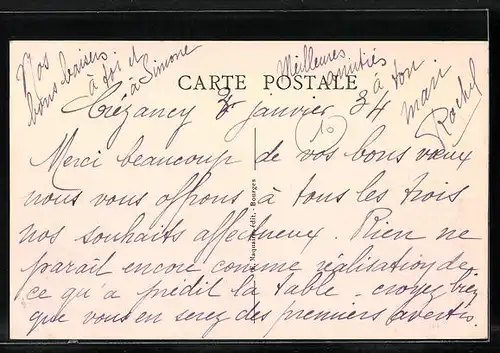 Nos
bons baisers
à toi et
à Simone
Meilleures
amitiés
à ton
mari
Rachel
CARTE POSTALE
Crézancy 3 janvier 34
10
Merci beaucoup de vos bons vœux
nous vous offrons à tous les trois
nos souhaits affectueux. Rien ne
paraît encore comme réalisation de
ce qu'a prédit la table. croyez bien
que vous en serez des premiers avertis.
Maquaire édit. - Bourges